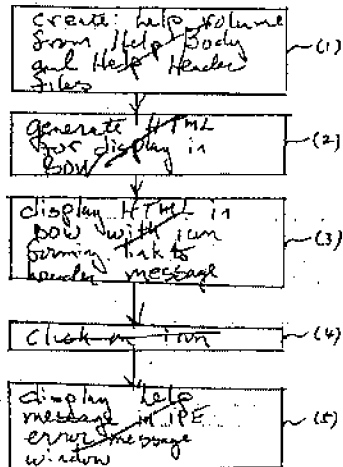 create help volume
from Help Body
and Help Header
files
(1)
generate HTML
for display in
BOW
(2)
display HTML in
BOW with icon
forming link to
header message
(3)
click on icon
(4)
display help
message in IPE
error message
window
(5)